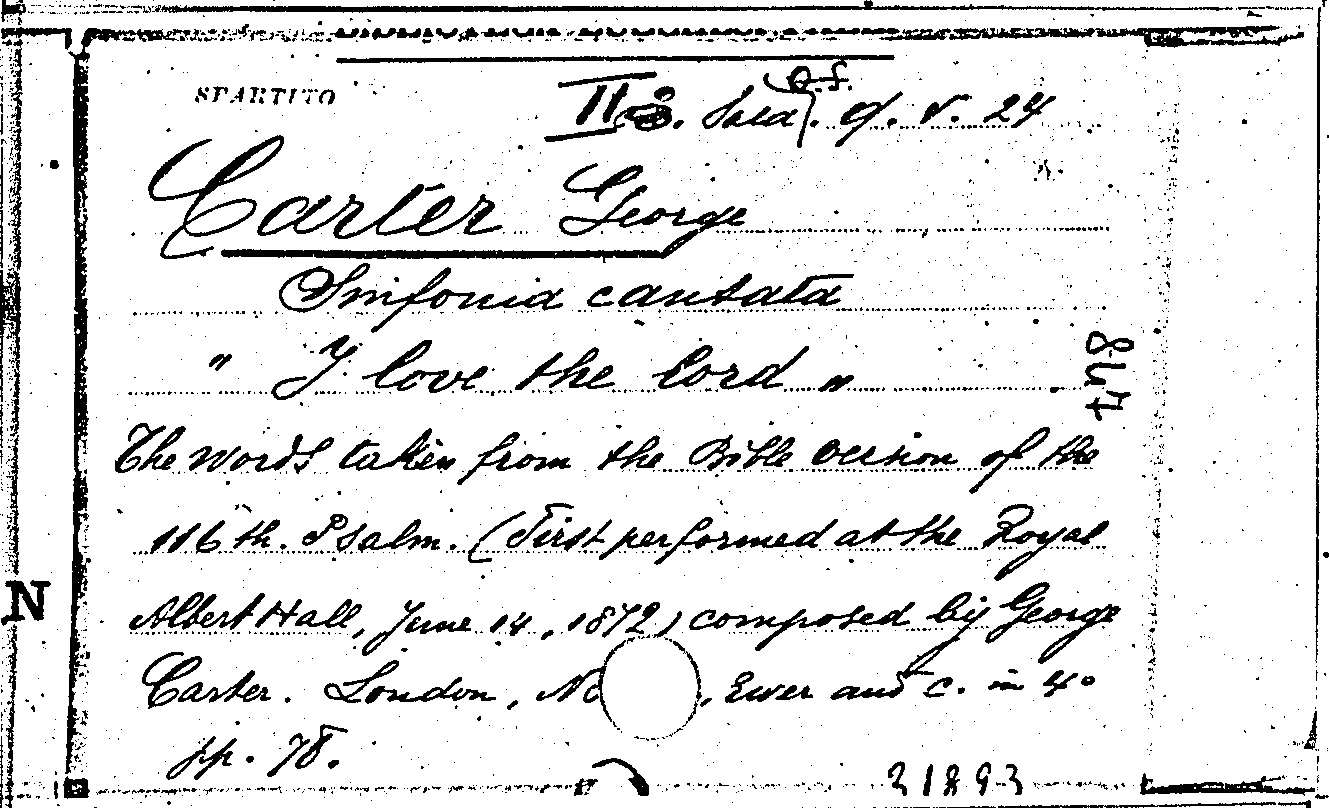 SPARTITO
II. Sala. O. V. 24
Carter George
Sinfonia cantata
" I love the lord "
478
The words taken from the Bible version of the
116th. Psalm. (First performed at the Royal
N
Albert Hall, June 14, 1872) composed by George
Carter. London, No , Ewer and C. in 4º
pp. 78.
31893